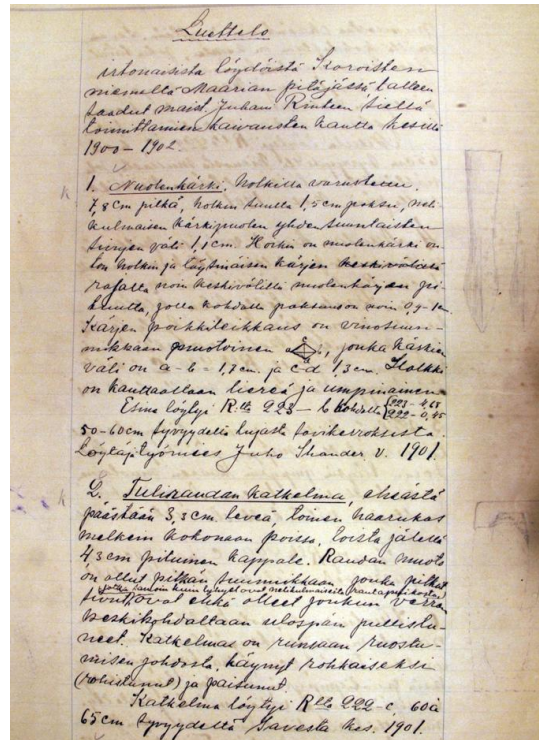 Luettelo
irtonaisista löydöistä Koroisten
niemeltä Maarian pitäjässä, talteen
saadut maist. Juhani Rinteen siellä
toimittamien kaivausten kautta kesillä
1900–1902.
1. Nuolenkärki, holkilla varustettu.
7,8 cm pitkä, holkin suulta 1,5 cm paksu, neli
kulmaisen kärkipuolen yhdensuuntaisten
sivujen väli 1,1 cm. on nuolenkärki
holkin ja täytinäisen kärjen keskivälissä
rajalla noin keskivälillä nuolenkärjen pi
tuutta, jolla kohdalla paksuus on noin 0,9–1 cm
Kärjen poikkileikkaus on vinosuun-
nikkaan muotoinen, jonka kärkien
väli on a–b = 1,7 cm. ja c–d 1,3 cm. Holkki
on kauttaaltaan liereä ja umpinainen.
Esine löytyi R:lla 223–b kohdalla 223–4,65
222–0,45
50–60 cm syvyydeltä lujasta savikerroksesta.
Löytäjä työmies Juho v. 1901.
2. Tuliraudan katkelma, eheästä
päästään 3,3 cm. leveä, toinen haarukas
melkein kokonaan poissa, toista jälellä
4,3 cm pituinen kappale. Raudan muoto
on ollut pitkän suunnikkaan jonka pitkät
sivut, jotka samoin kuin lyhyet ovat nelikulmaisesta
ovat ehkä olleet jonkun verran
keskikohdaltaan ulospäin pullistu-
neet. Katkelma on runsaan ruostu-
misen johdosta käynyt rohkaiseksi
(rohistunut) ja paisunut.
Katkelma löytyi R:lla 222–c 60 à
65 cm syvyydeltä savesta kes. 1901.